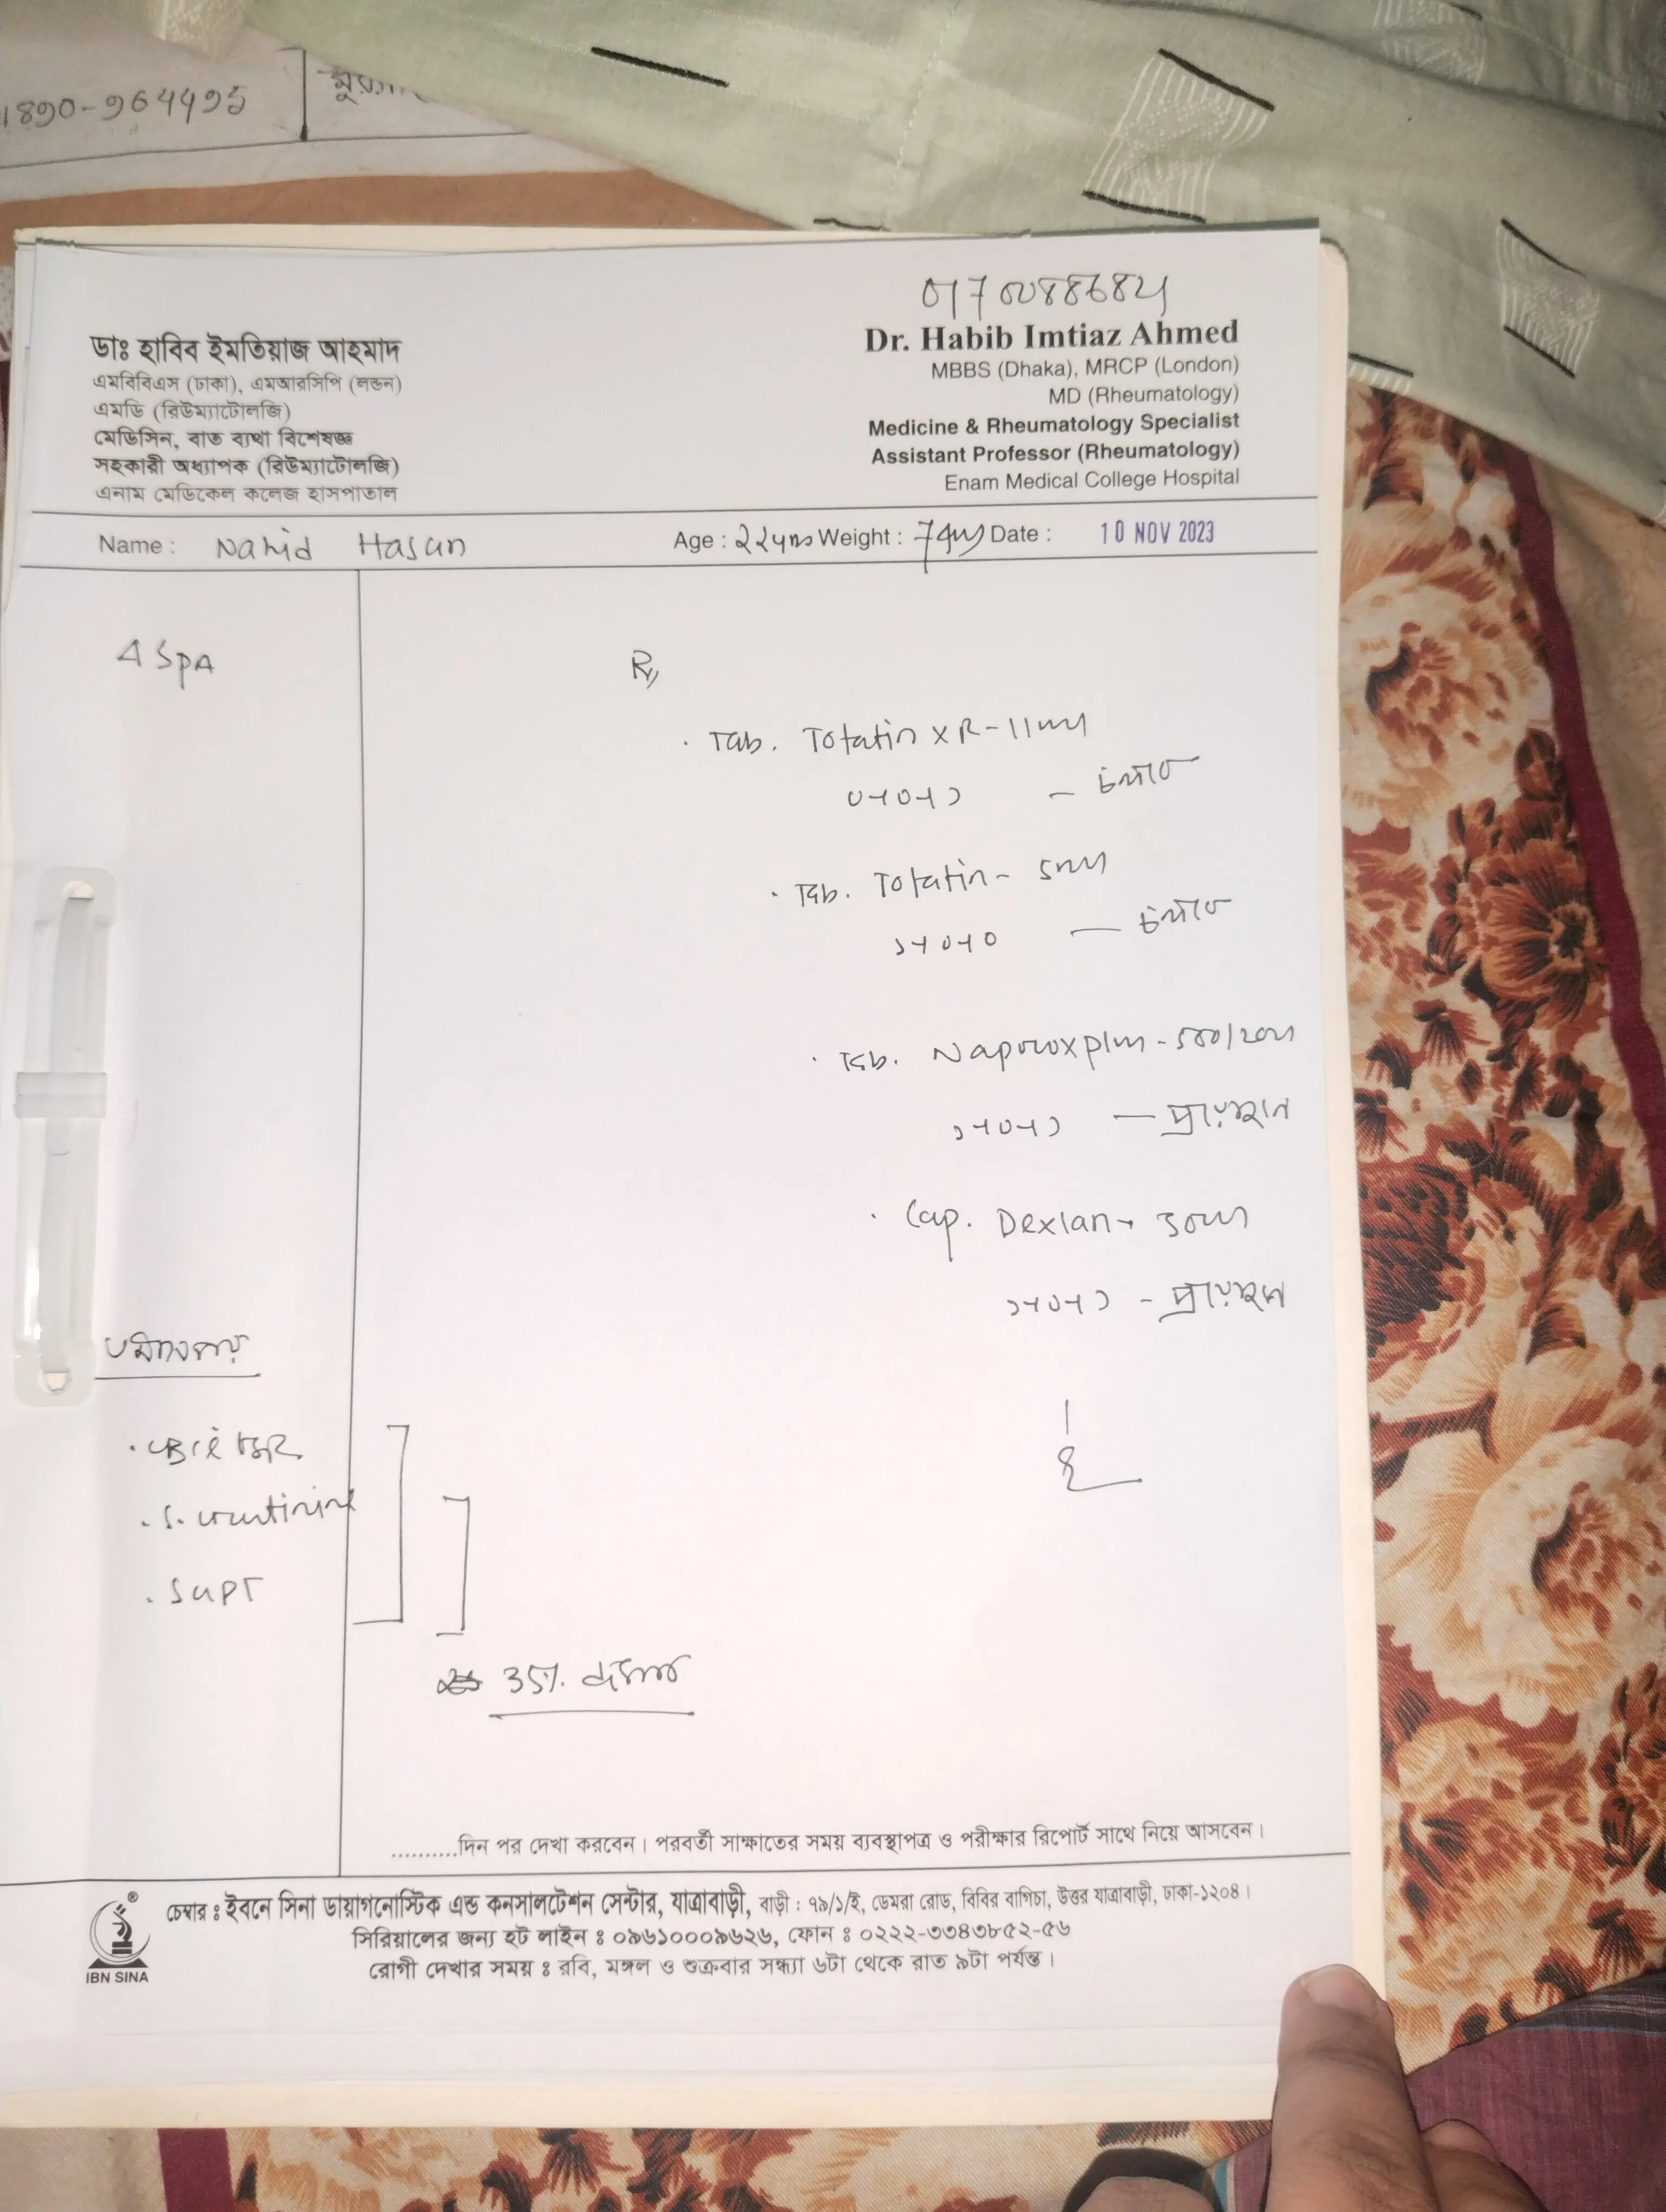 1890-964495
01706088684
ডাঃ হাবিব ইমতিয়াজ আহমাদ
এমবিবিএস (ঢাকা), এমআরসিপি (লন্ডন)
এমডি (রিউম্যাটোলজি)
মেডিসিন, বাত ব্যথা বিশেষজ্ঞ
সহকারী অধ্যাপক (রিউম্যাটোলজি)
এনাম মেডিকেল কলেজ হাসপাতাল
Dr. Habib Imtiaz Ahmed
MBBS (Dhaka), MRCP (London)
MD (Rheumatology)
Medicine & Rheumatology Specialist
Assistant Professor (Rheumatology)
Enam Medical College Hospital
Name : Nahid Hasan Age : Weight : Date : 10 NOV 2023
SpA
Rx
Tab. Tofatin XR-11mg
০+০+১ - চলবে
Tab. Tofatin - 5mg
১+০+০ — চলবে
Tab. Naprox plus - 500/20mg
১+০+১ — প্রয়োজনে
Cap. Dexlan - 30mg
১+০+১ - প্রয়োজনে
S. creatinine
SGPT
35%
..........দিন পর দেখা করবেন। পরবর্তী সাক্ষাতের সময় ব্যবস্থাপত্র ও পরীক্ষার রিপোর্ট সাথে নিয়ে আসবেন।
চেম্বার : ইবনে সিনা ডায়াগনোস্টিক এন্ড কনসালটেশন সেন্টার, যাত্রাবাড়ী, বাড়ী : ৭৯/১/ই, ডেমরা রোড, বিবির বাগিচা, উত্তর যাত্রাবাড়ী, ঢাকা-১২০৪।
সিরিয়ালের জন্য হট লাইন : ০৯৬১০০০৯৬২৬, ফোন : ০২২২-৩৩৪৩৮৫২-৫৬
রোগী দেখার সময় : রবি, মঙ্গল ও শুক্রবার সন্ধ্যা ৬টা থেকে রাত ৯টা পর্যন্ত।
IBN SINA